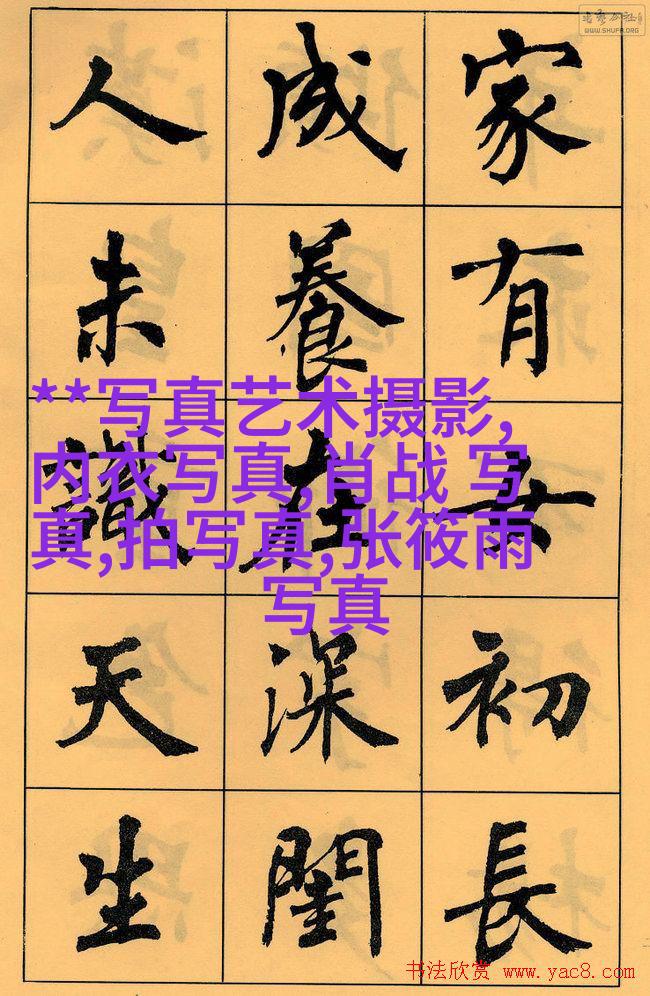 WWW.SHUFA.ORG
家有女初長
成養在深閨
人未識天生
**写真艺术摄影,
内衣写真,肖战 写
真,拍写真,张筱雨
写真
书法欣赏 www.yac8.com